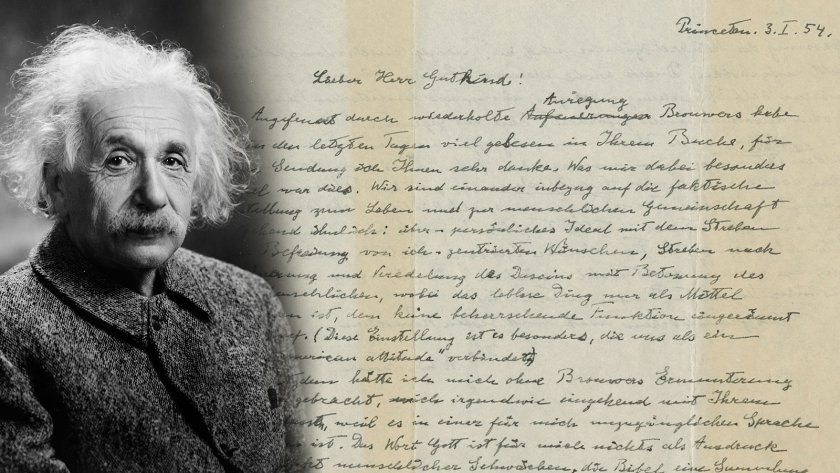 Princeton. 3. I. 54.
Lieber Herr Gutkind!
Anregung
Angefeuert durch wiederholte Brouwers habe
in den letzten Tagen viel gelesen in Ihrem Buche, für
Sendung ich Ihnen sehr danke. Was mir dabei besonders
war dies. Wir sind einander inbezug auf die faktische
tellung zum Leben und zur menschlichen Gemeinschaft
ehend ähnlich: über-persönliches Ideal mit dem Streben
Befreiung von ich-zentrierten Wünschen, Streben nach
nerung und Veredelung des Daseins mit Betonung des
nschlichen, wobei das leblose Ding nur als Mittel
en ist, dem keine beherrschende Funktion eingeräumt
f. (Diese Einstellung ist es besonders, die uns als ein
merican attitude" verbindet)
dem hätte ich mich ohne Brouwers Ermunterung
gebracht, mich irgendwie eingehend mit Ihrem
weil es in einer für mich unzugänglichen Sprache
ist. Das Wort Gott ist für mich nichts als Ausdruck
menschlicher Schwächen, die Bibel eine Sammlung